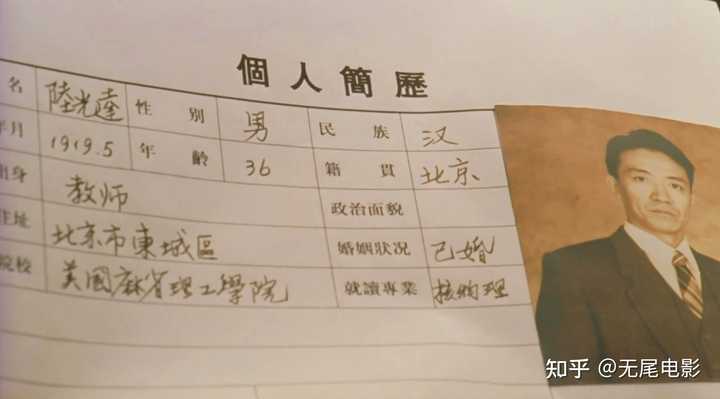 個人簡歷
名 陸光達 性別 男 民族 汉
年月 1919.5 年齡 36 籍貫 北京
出身 教师 政治面貌
住址 北京市東城區 婚姻狀况 已婚
院校 美國麻省理工學院 就讀專業 核物理
知乎 @无尾电影